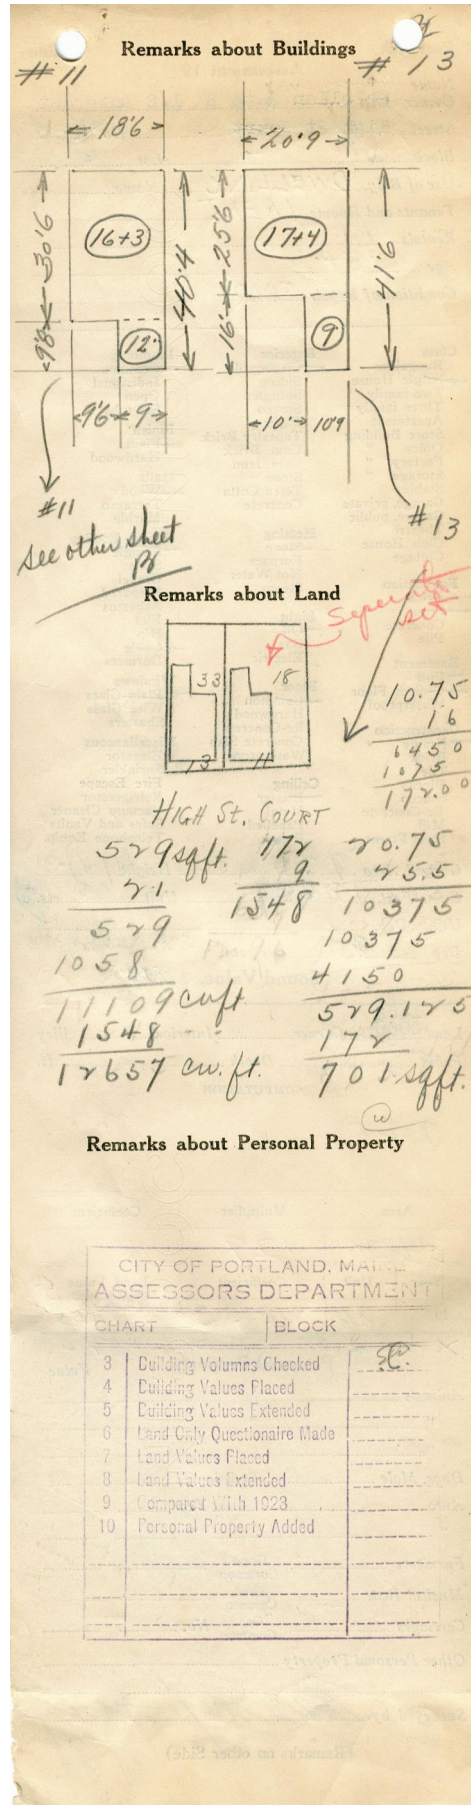 Remarks about Buildings
#11
#13
18'6
20'9
30'6
16+3
40'4
25'6
17+4
41'6
9'8
12'
16'
9
9'6
9
10'
10'9
#11
#13
see other sheet
Remarks about Land
Seperate
set
33
18
13
11
10.75
16
6450
1075
172.00
HIGH ST. COURT
529 sq ft.
21
529
1058
11109 cu ft
1548
12657 cu. ft.
172
9
1548
20.75
25.5
10375
10375
4150
529.125
172
701 sq ft.
Remarks about Personal Property
CITY OF PORTLAND, MAINE
ASSESSORS DEPARTMENT
CHART BLOCK
3 Building Volumns Checked
4 Building Values Placed
5 Building Values Extended
6 Land Only Questionaire Made
7 Land Values Placed
8 Land Values Extended
9 Compared With 1923
10 Personal Property Added